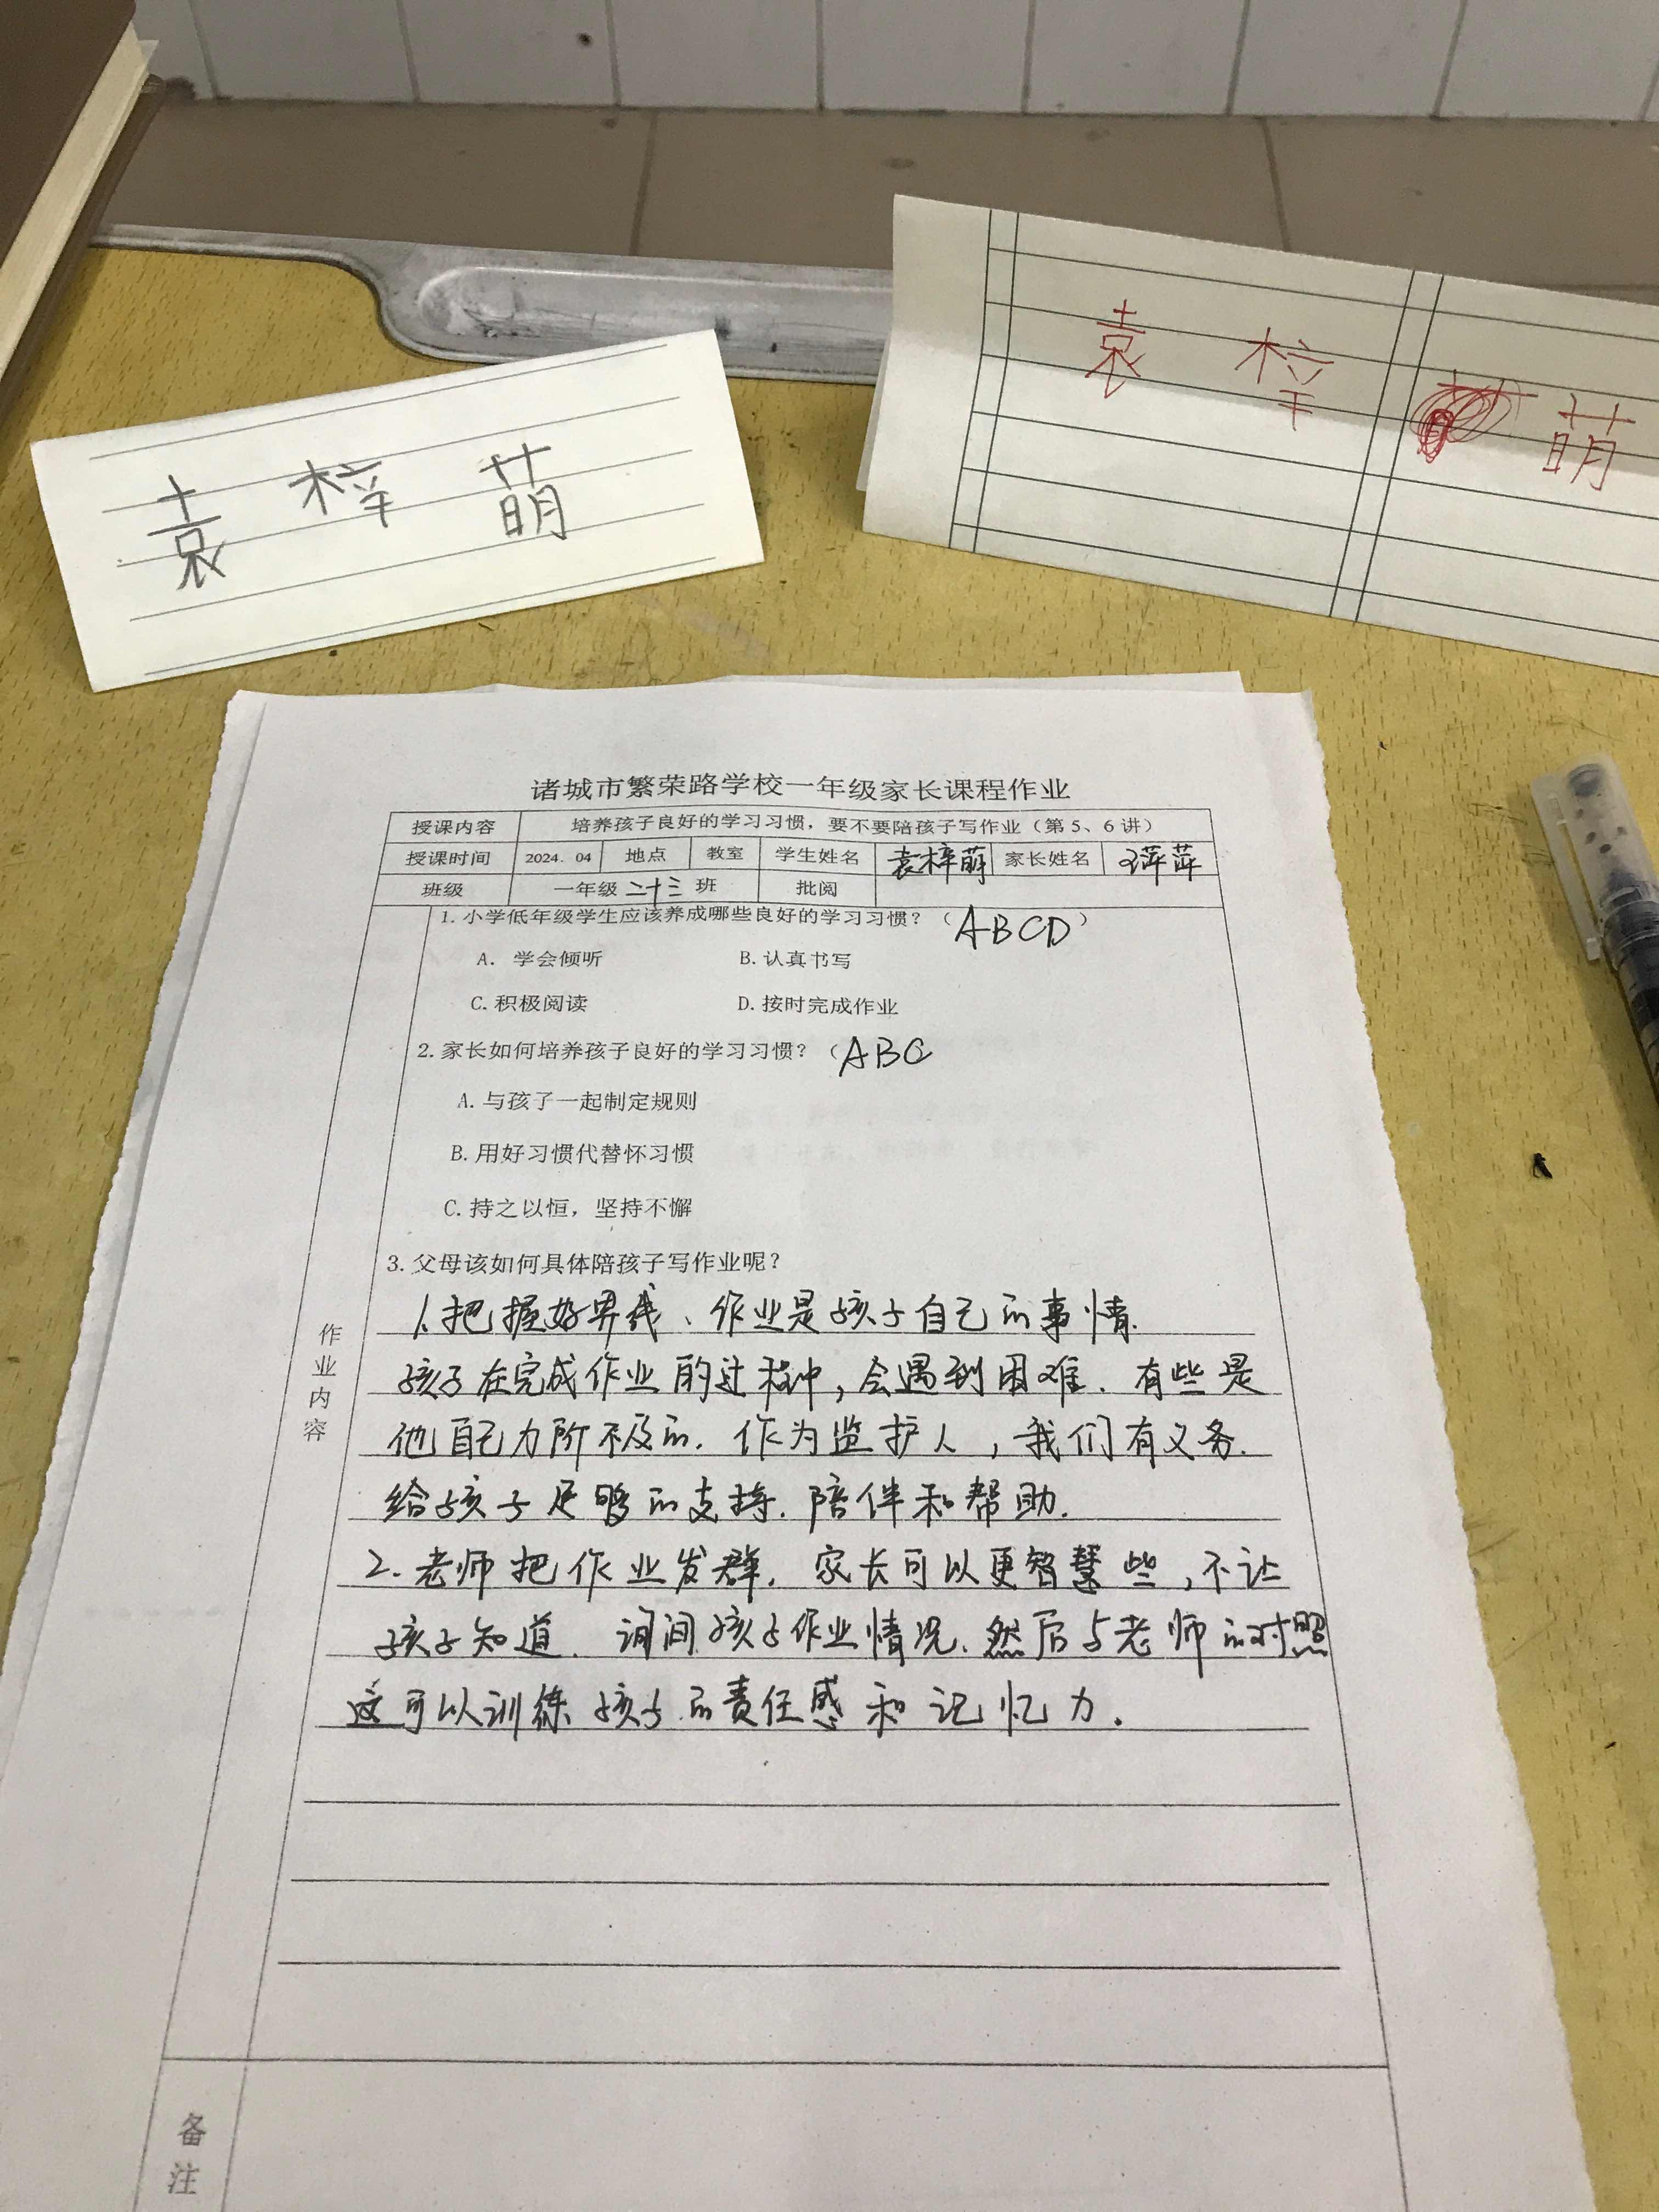 袁 梓 萌
袁 梓 萌
诸城市繁荣路学校一年级家长课程作业
授课内容 培养孩子良好的学习习惯，要不要陪孩子写作业（第5、6讲）
授课时间 2024.04 地点 教室 学生姓名 袁梓萌 家长姓名 王萍萍
班级 一年级二十三班 批阅
1.小学低年级学生应该养成哪些良好的学习习惯？（ABCD）
A. 学会倾听 B.认真书写
C.积极阅读 D.按时完成作业
2.家长如何培养孩子良好的学习习惯？（ABC
A.与孩子一起制定规则
B.用好习惯代替怀习惯
C.持之以恒，坚持不懈
3.父母该如何具体陪孩子写作业呢？
作业内容
1.把握好界线、作业是孩子自己的事情.
孩子在完成作业的过程中,会遇到困难.有些是
他自己力所不及的.作为监护人,我们有义务.
给孩子足够的支持.陪伴和帮助.
2.老师把作业发群.家长可以更智慧些,不让
孩子知道.询问孩子作业情况.然后与老师的对照
这可以训练孩子的责任感和记忆力.
备注